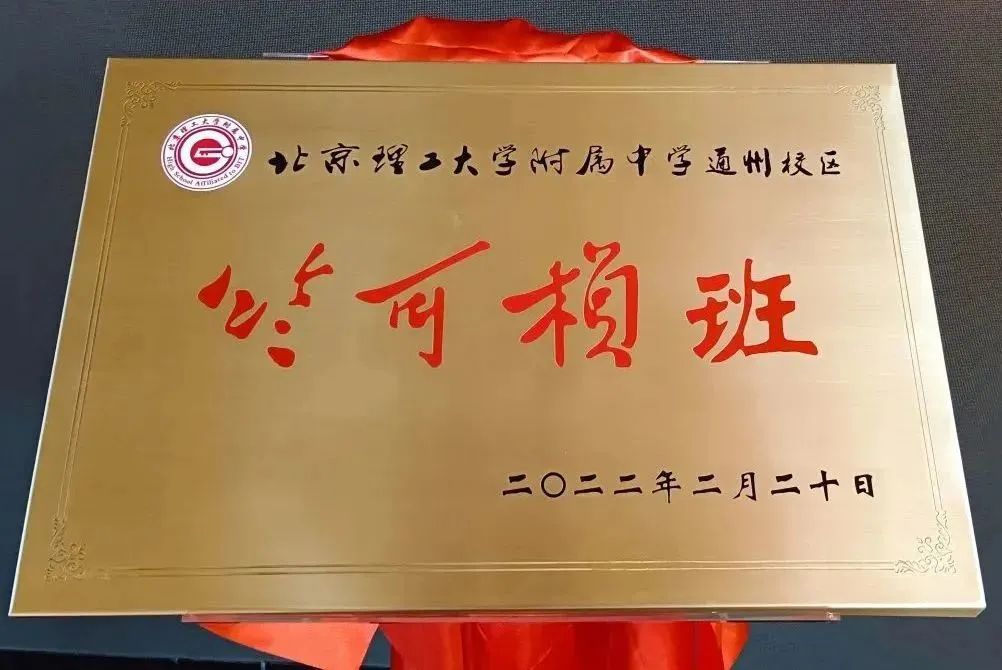 北京理工大学附属中学
High School Affiliated to BIT
北京理工大学附属中学通州校区
竺可楨班
二〇二二年二月二十日